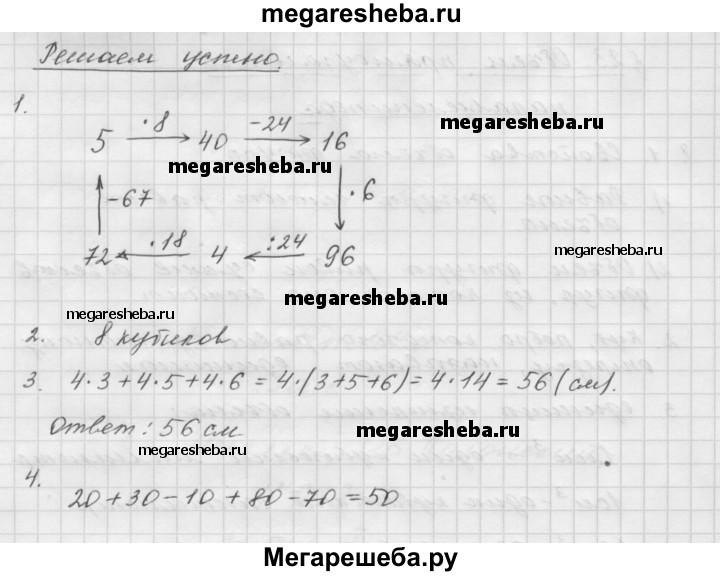 megaresheba.ru
Решаем устно.
1.
5 ·8 40 -24 16
megaresheba.ru
megaresheba.ru
-67 ·6
72 ·18 4 :24 96
megaresheba.ru
megaresheba.ru
2. 8 кубиков
3. 4·3+4·5+4·6=4·(3+5+6)=4·14=56(см).
Ответ: 56 см
megaresheba.ru
megaresheba.ru
4.
20+30-10+80-70=50
Мегарешеба.ру